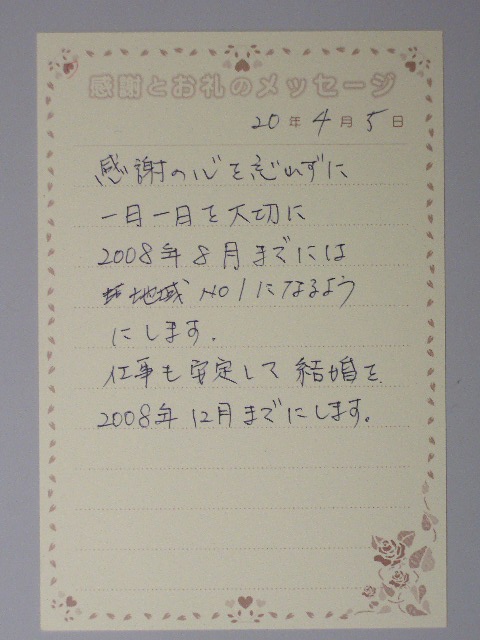 感謝とお礼のメッセージ
20年4月5日
感謝の心を忘れずに
一日一日を大切に
2008年8月までには
地域NO1になるよう
にします.
仕事も安定して結婚を
2008年12月までにします。